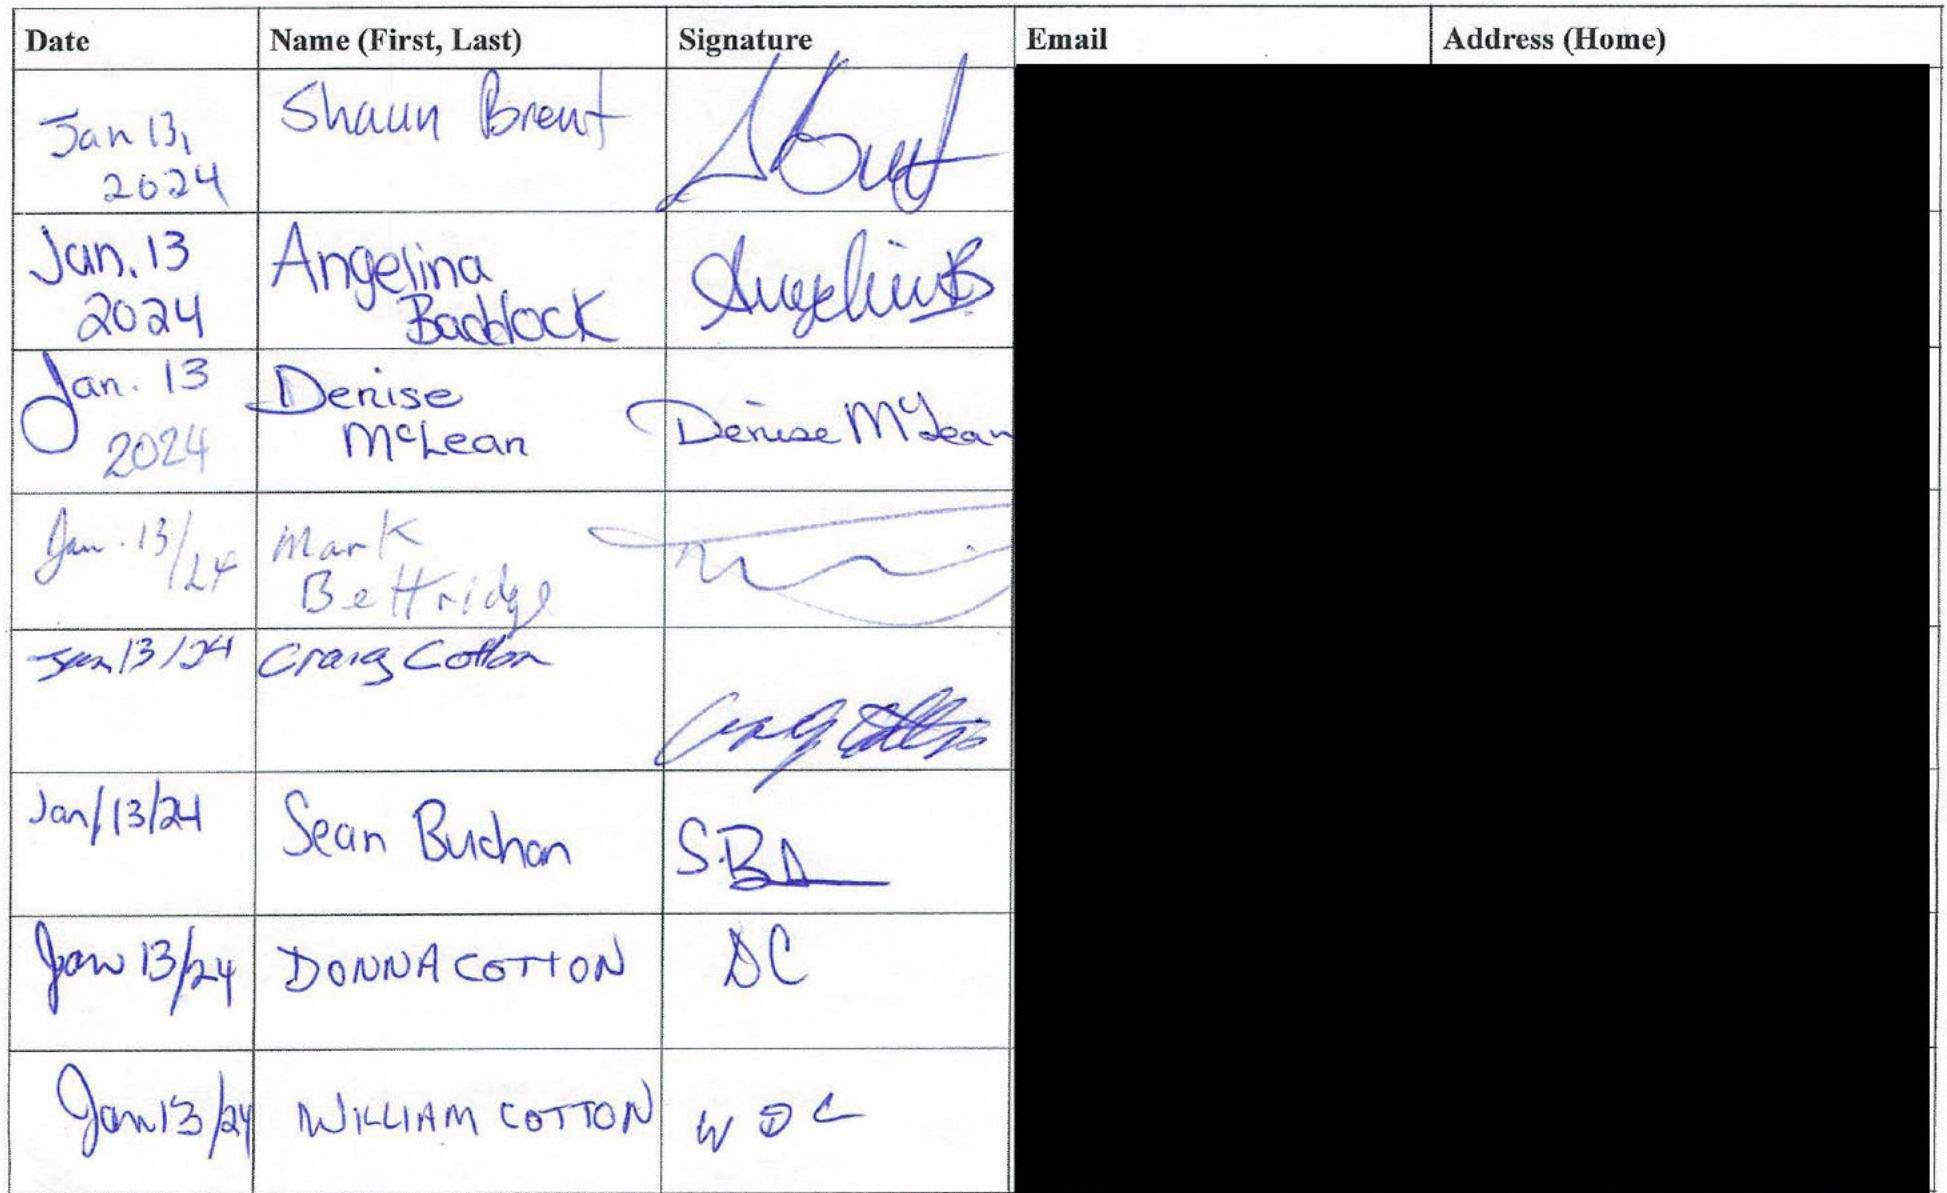 Date Name (First, Last) Signature Email Address (Home)
Jan 13, 2024 Shaun Brent
Jan. 13 2024 Angelina Baddock Angelina B
Jan. 13 2024 Denise McLean Denise McLean
Jan. 13/24 Mark Bettridge
Jan 13/24 Craig Cotton Craig Cotton
Jan/13/24 Sean Buchan S.B
Jan 13/24 DONNA COTTON DC
Jan 13/24 WILLIAM COTTON W D C